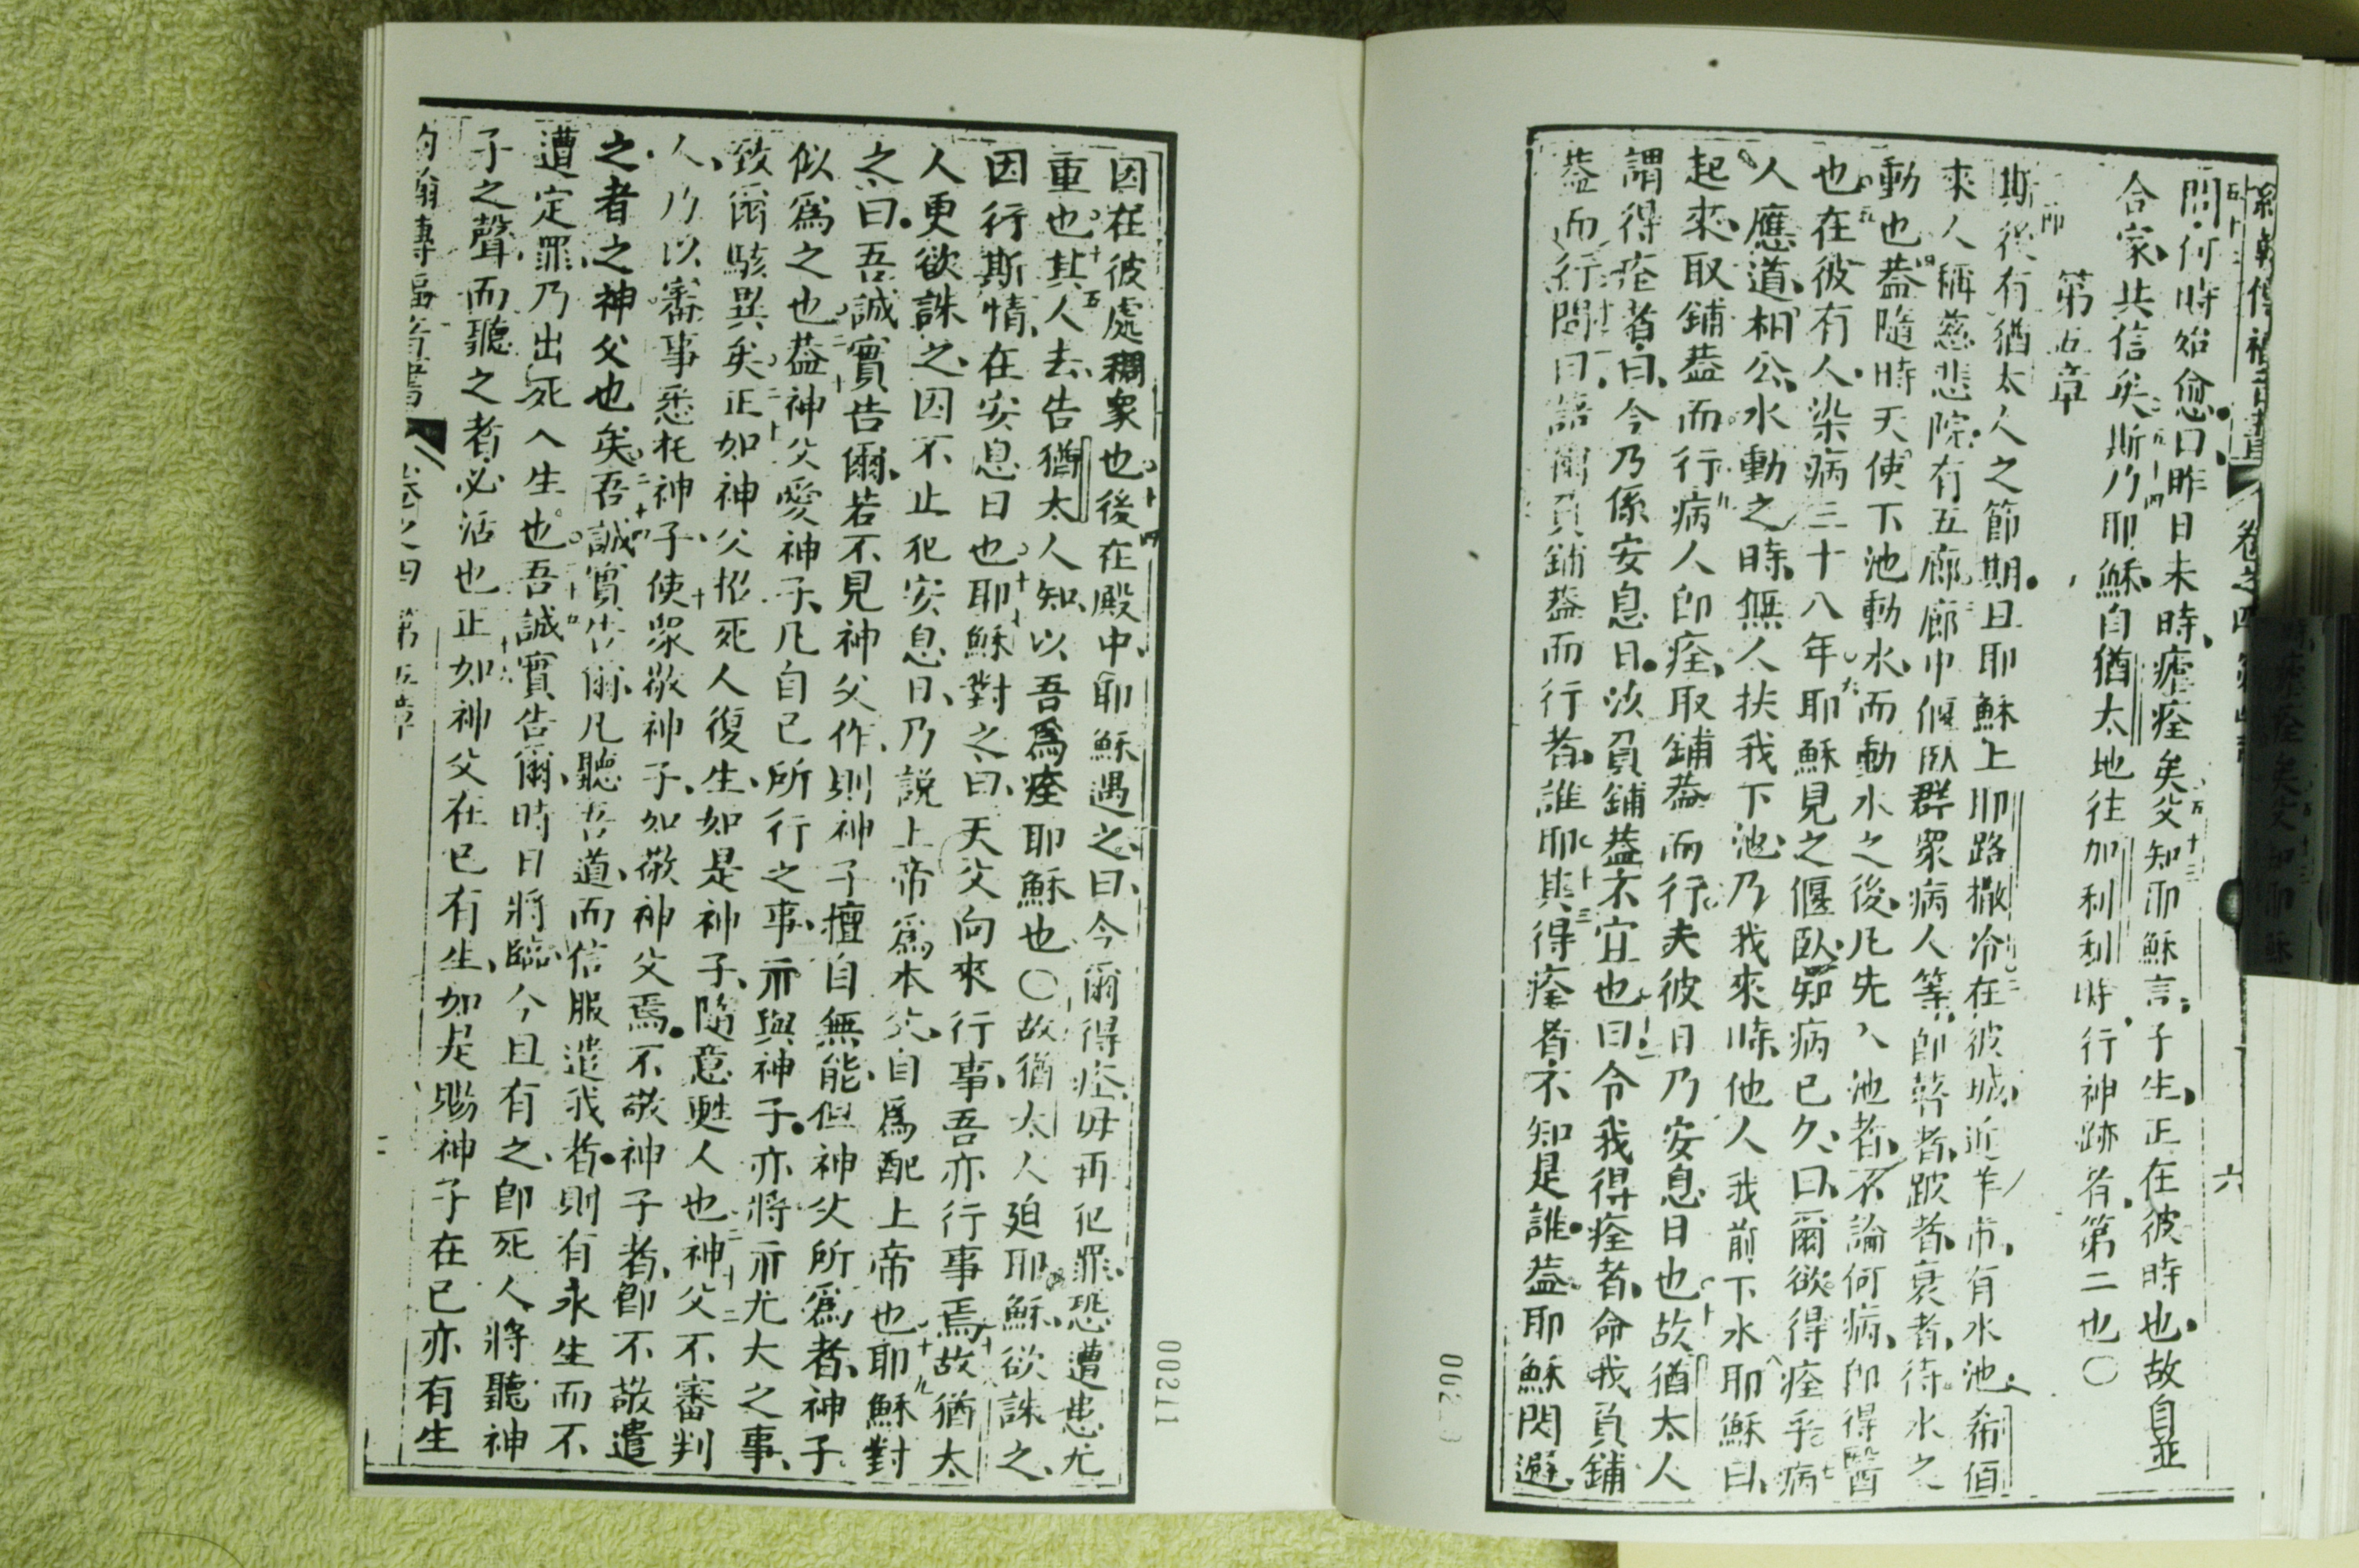 約翰傳福音書 卷之四 六
五十二
問何時始愈曰昨日未時瘧痊矣父知耶穌言子生正在彼時也故自並
合家共信矣斯乃耶穌自猶太地往加利利時行神跡者第二也〇
第五章
斯後有猶太人之節期且耶穌上耶路撒冷在彼城近羊市有水池希佰
來人稱慈悲院有五廊廊中偃臥群眾病人等即瞽者跛者衰者待水之
動也蓋隨時天使下池動水而動水之後凡先入池者不論何病即得醫
也在彼有人染病三十八年耶穌見之偃臥知病已久曰爾欲得痊乎病
人應道相公水動之時無人扶我下池乃我來時他人我前下水耶穌曰
起來取鋪蓋而行病人即痊取鋪蓋而行夫彼日乃安息日也故猶太人
謂得痊者曰今乃係安息日汝負鋪蓋不宜也曰令我得痊者命我負鋪
蓋而行問曰語爾負鋪蓋而行者誰耶其得痊者不知是誰蓋耶穌閃避
因在彼處稠眾也後在殿中耶穌遇之曰今爾得痊毋再犯罪恐遭患尤
重也其人去告猶太人知以吾為痊耶穌也〇故猶太人廹耶穌欲誅之
因行斯情在安息日也耶穌對之曰天父向來行事吾亦行事焉故猶太
人更欲誅之因不止犯安息日乃說上帝為本父自為配上帝也耶穌對
之曰吾誠實告爾若不見神父作則神子擅自無能但神父所為者神子
似為之也蓋神父愛神子凡自己所行之事示與神子亦將示尤大之事
致爾駭異矣正如神父招死人復生如是神子隨意甦人也神父不審判
人乃以審事悉托神子使眾敬神子如敬神父焉不敬神子者即不敬遣
之者之神父也矣吾誠實告爾凡聽吾道而信服遣我者則有永生而不
遭定罪乃出死入生也吾誠實告爾時日將臨今且有之即死人將聽神
子之聲而聽之者必活也正如神父在已有生如是賜神子在已亦有生
約翰傳福音書 卷之四 第五章
00211